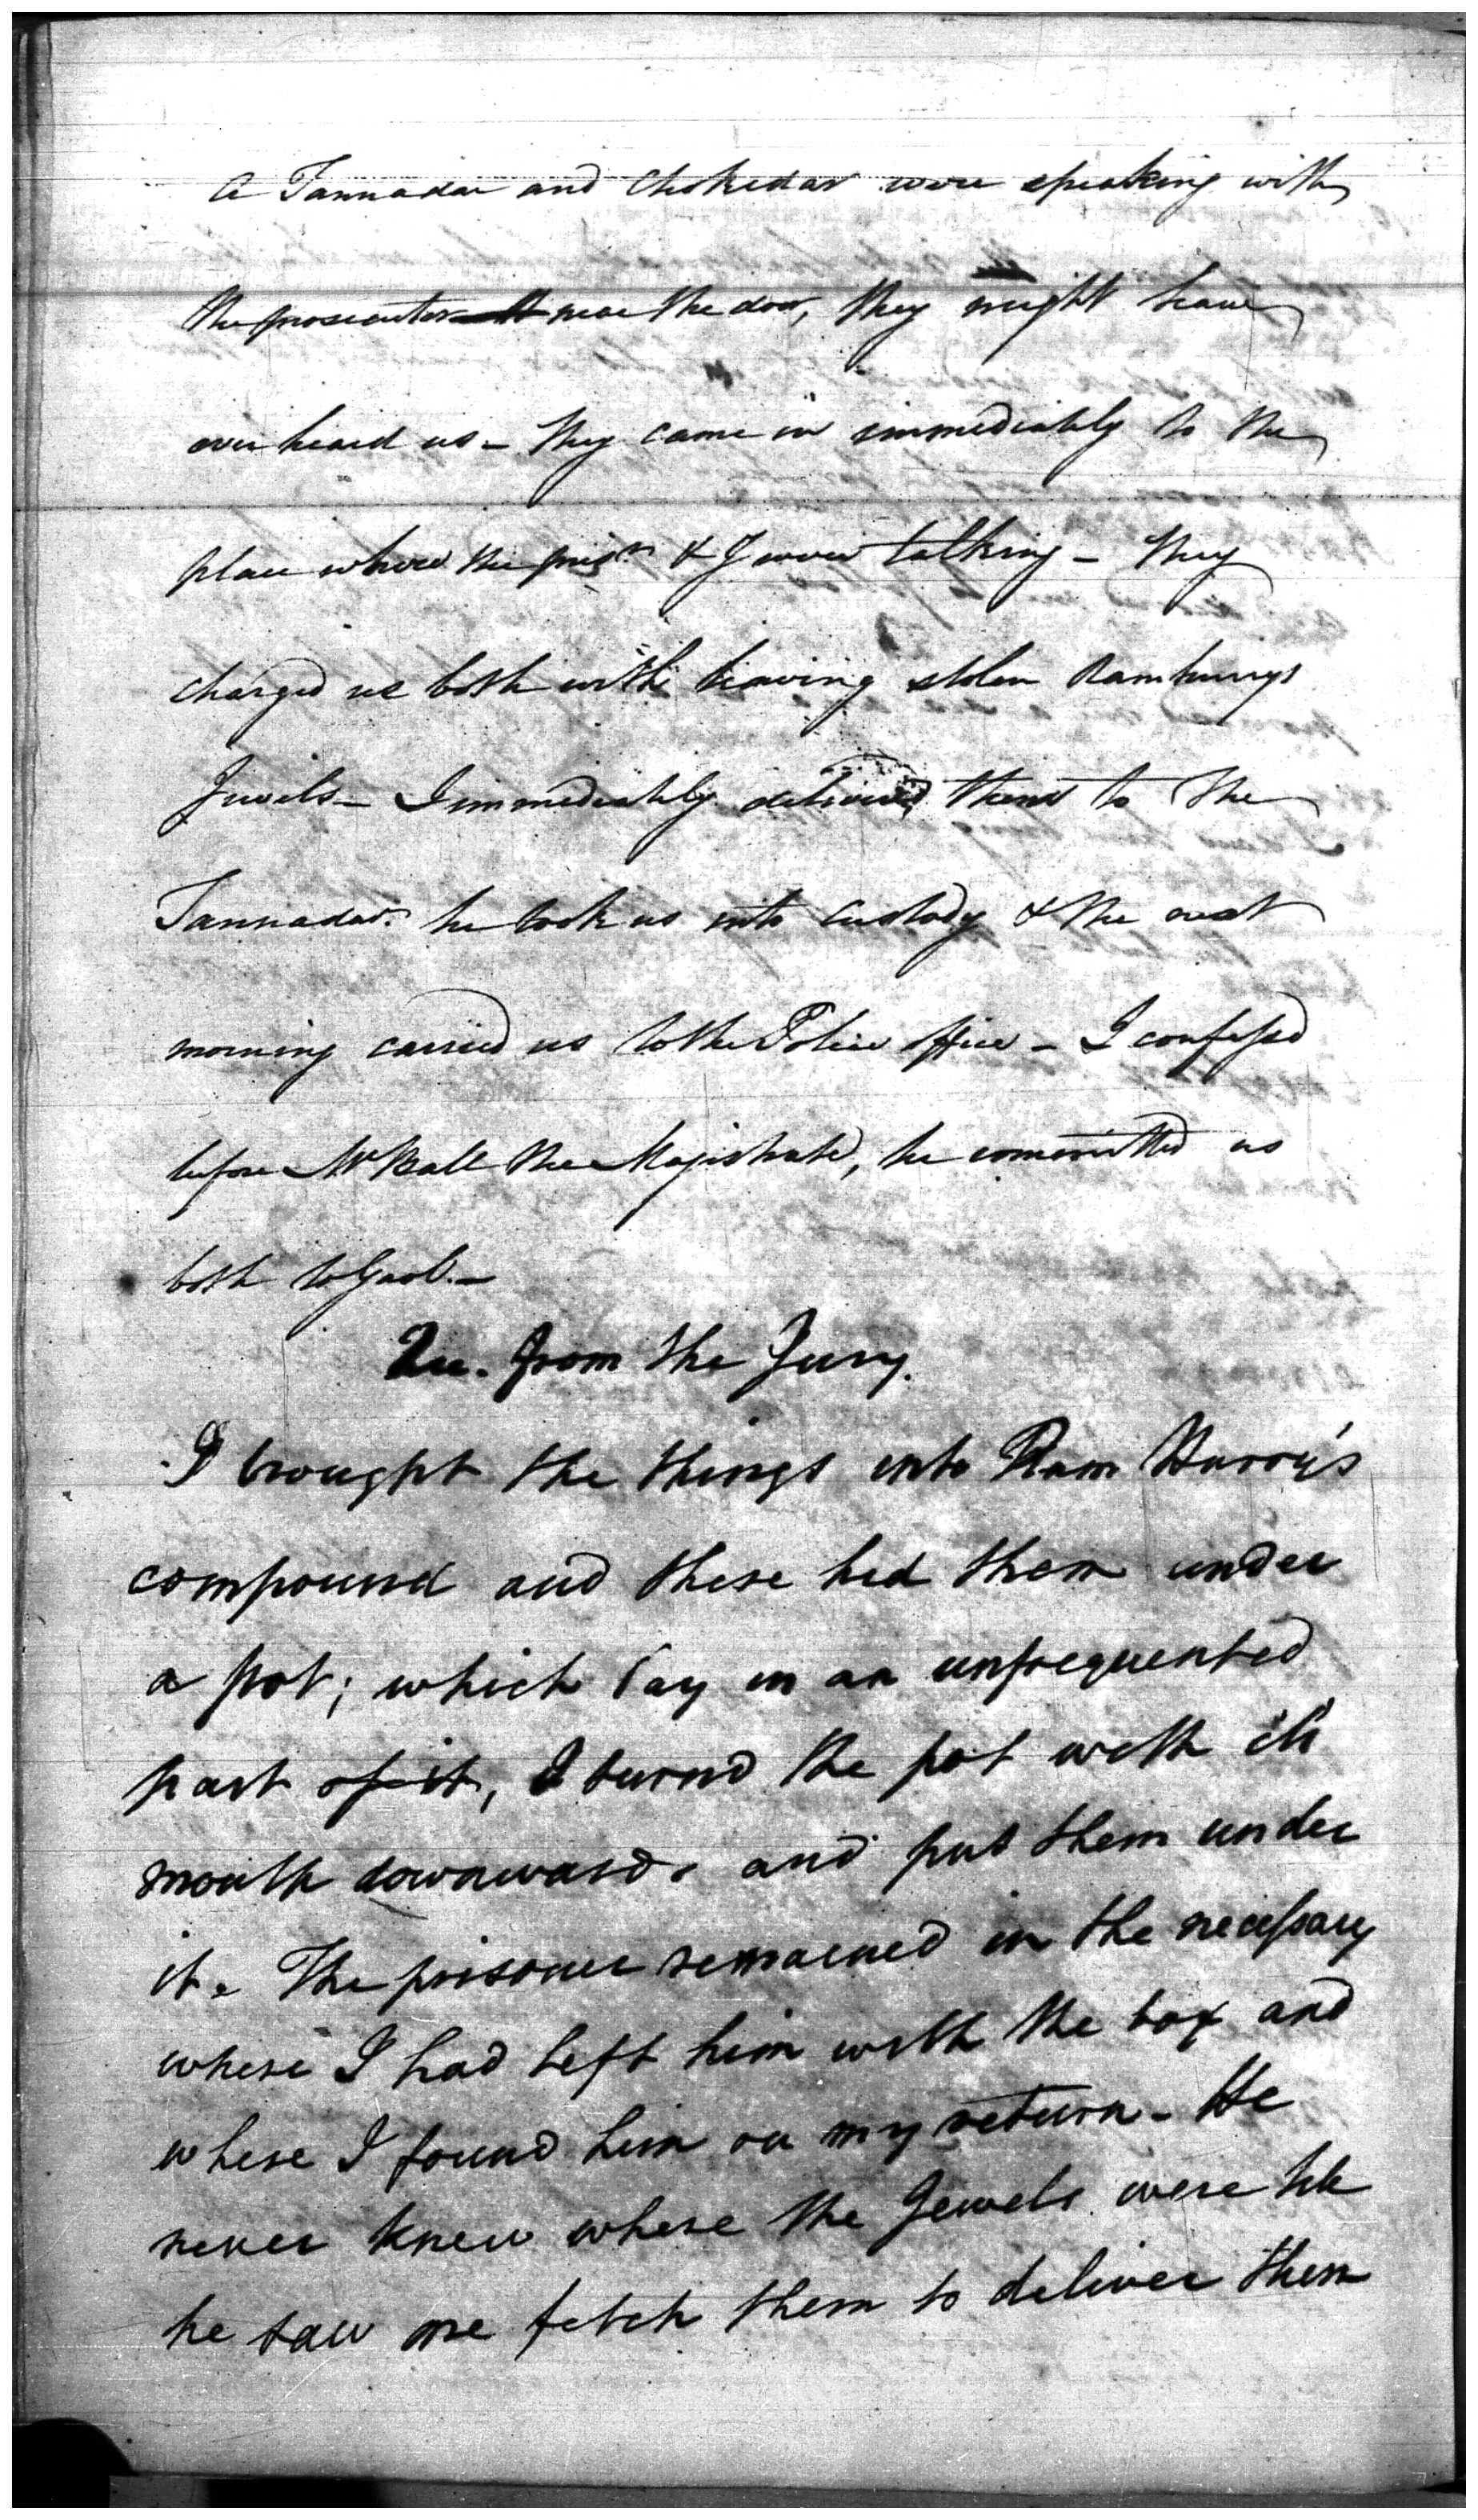 A Tannadar and Chokedar were speaking with
the prosecutor near the door, they might have
over heard us - they came in immediately to the
place where the prisr. & I were talking - they
charged us both with having stolen Ramhurrys
Jewels - I immediately delivered them to the
Tannadar. he took us into custody & the next
morning carried us to the Police office - I confessed
before Mr Ball the Magistrate, he committed us
both to Gaol. -
Qu. from the Jury.
I brought the things into Ram Hurry's
compound and there hid them under
a pot; which lay in an unfrequented
part of it, I turnd the pot with its
mouth downwards and put them under
it. The prisoner remained in the necessary
where I had left him with the box and
where I found him on my return - He
never knew where the Jewels were till
he saw me fetch them to deliver them